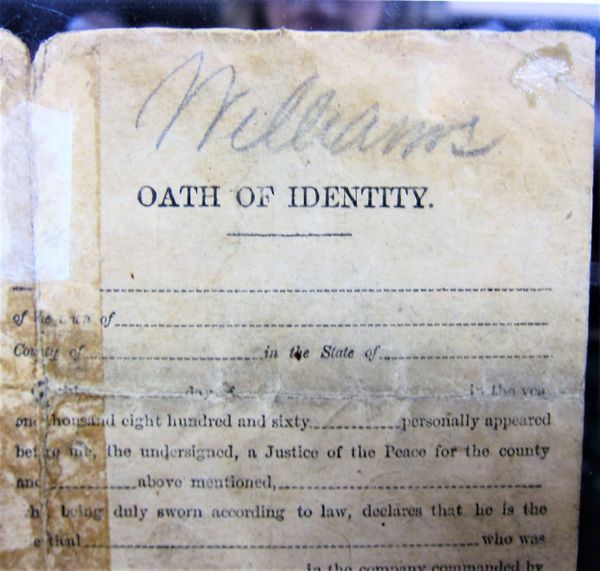 Williams
OATH OF IDENTITY.
of the town of
County of in the State of
in the year
one thousand eight hundred and sixty personally appeared
before me, the undersigned, a Justice of the Peace for the county
and above mentioned,
being duly sworn according to law, declares that he is the
who was
in the company commanded by